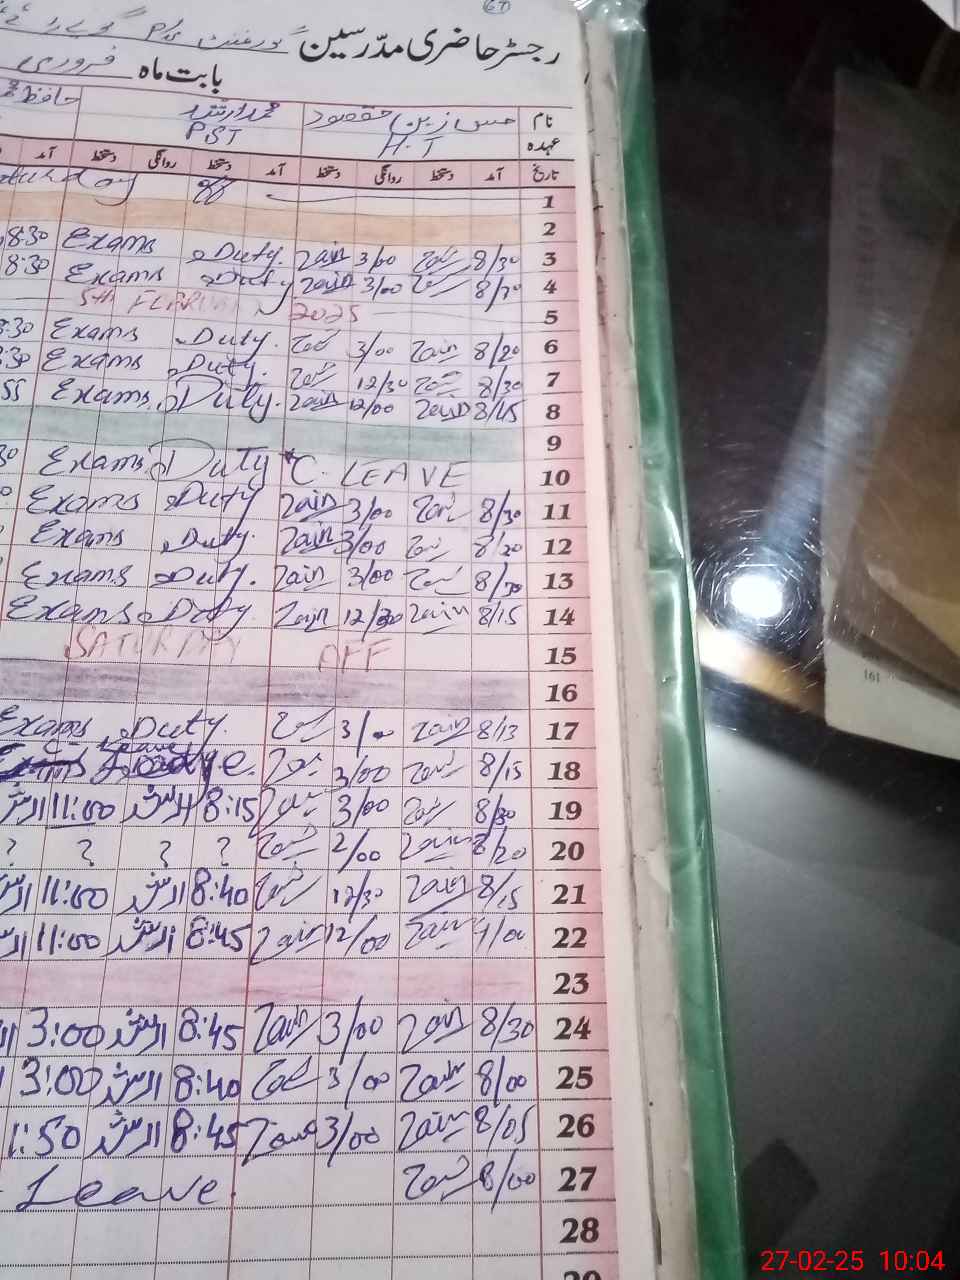 رجسٹر حاضری مدرسین گورنمنٹ P/S
بابت ماہ فروری
نام مقصود محمد ارشد حافظ
عہدہ H.T PST
تاریخ آمد دستخط روانگی دستخط آمد دستخط روانگی دستخط آمد
1 off
2
3 8/30 3/00 Zain Duty. Exams 8:30
4 3/00 Zain Duty Exams 8:30
5 5th 2025
6 8/20 Zain 3/00 Duty. Exams :30
7 8/30 12/30 Duty. Exams :30
8 8/15 Zain 12/00 Zain Duty. Exams 55
9
10 C. LEAVE Duty Exams 30
11 8/30 3/00 Zain Duty Exams
12 8/20 3/00 Zain Duty. Exams
13 8/30 3/00 Zain Duty. Exams
14 8/15 Zain 12/30 Zain Duty Exams
15 OFF SATURDAY
16
17 8/13 Zain 3/00 Duty. Exams
18 8/15 3/00 Leave
19 8/30 3/00 8:15 ارشد 11:00
20 8/20 Zain 2/00 ? ? ? ?
21 8/15 Zain 12/30 8:40 ارشد 11:00
22 Zain 12/00 Zain 8:45 ارشد 11:00
23
24 8/30 Zain 3/00 Zain 8:45 ارشد 3:00
25 8/00 Zain 3/00 8:40 ارشد 3:00
26 8/05 Zain 3/00 8:45 ارشد 1:50
27 8/00 Leave.
28
29
161
27-02-25 10:04